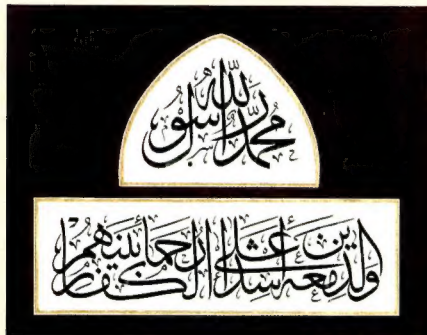 محمد رسول الله
والذين معه أشداء على الكفار رحماء بينهم